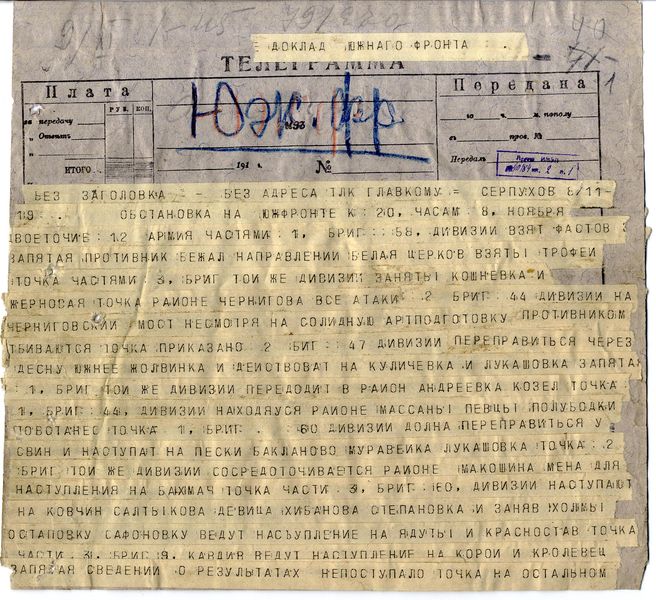 Е ДОКЛАД ЮЖНАГО ФРОНТА
ТЕЛЕГРАММА
Плата
РУБ. КОП.
за передачу
„ Отвѣтъ
ИТОГО
Юж. фр.
№93
191 г. №
Передана
го ч. м. пополу
въ пров. №
Передалъ
1
БЕЗ ЗАГОЛОВКА = БЕЗ АДРЕСА ТЛК ГЛАВКОМУ = СЕРПУХОВ 8/11-
19 . ОБСТАНОВКА НА ЮЖФРОНТЕ К 20, ЧАСАМ 8, НОЯБРЯ
ДВОЕТОЧИЕ : 12 АРМИЯ ЧАСТЯМИ : 1, БРИГ : 58, ДИВИЗИИ ВЗЯТ ФАСТОВ
ЗАПЯТАЯ ПРОТИВНИК БЕЖАЛ НАПРАВЛЕНИИ БЕЛАЯ ЦЕРКОВ ВЗЯТЫ ТРОФЕИ
ТОЧКА ЧАСТЯМИ 3, БРИГ ТОИ ЖЕ ДИВИЗИИ ЗАНЯТЫ КОШНЕВКА И
ЖЕРНОВАЯ ТОЧКА РАИОНЕ ЧЕРНИГОВА ВСЕ АТАКИ : 2 БРИГ : 44 ДИВИЗИИ НА
ЧЕРНИГОВСКИЙ МОСТ НЕСМОТРЯ НА СОЛИДНУЮ АРТПОДГОТОВКУ ПРОТИВНИКОМ
ТБИВАЮТСЯ ТОЧКА ПРИКАЗАНО : 2 БИГ : 47 ДИВИЗИИ ПЕРЕПРАВИТЬСЯ ЧЕРЕЗ
ДЕСНУ ЮЖНЕЕ ЖОЛВИНКА И ДЕИСТВОВАТ НА КУЛИЧЕВКА И ЛУКАШОВКА ЗАПЯТАЯ
: 1, БРИГ ТОИ ЖЕ ДИВИЗИИ ПЕРЕДОДИТ В РАИОН АНДРЕЕВКА КОЗЕЛ ТОЧКА
1, БРИГ : 44, ДИВИЗИИ НАХОДЯУСЯ РАИОНЕ МАССАНЫ ПЕВЦЫ ПОЛУБОДКИ
ПОВОТАНЕС ТОЧКА 1, БРИГ . : 60 ДИВИЗИИ ДОЛНА ПЕРЕПРАВИТЬСЯ У
СВИН И НАСТУПАТ НА ПЕСКИ БАКЛАНОВО МУРАВЕИКА ЛУКАШОВКА ТОЧКА : 2
БРИГ ТОИ ЖЕ ДИВИЗИИ СОСРЕДОТОЧИВАЕТСЯ РАИОНЕ МАКОШИНА МЕНА ДЛЯ
НАСТУПЛЕНИЯ НА БАХМАЧ ТОЧКА ЧАСТИ : 3, БРИГ : 60, ДИВИЗИИ НАСТУПАЮТ
НА КОВЧИН САЛТЫКОВА ДЕВИЦА ХИБАНОВА СТЕПАНОВКА И ЗАНЯВ ХОЛМЫ
ОСТАПОВКУ САФОНОВКУ ВЕДУТ НАСЪУПЛЕНИЕ НА ЯДУТЫ И КРАСНОСТАВ ТОЧКА
ЧАСТИ : 3, БРИГ : 9, КАВДИЯ ВЕДУТ НАСТУПЛЕНИЕ НА КОРОИ И КРОЛЕВЕЦ
ЗАПЯТАЯ СВЕДЕНИИ О РЕЗУЛЬТАТАХ НЕПОСТУПАЛО ТОЧКА НА ОСТАЛЬНОМ